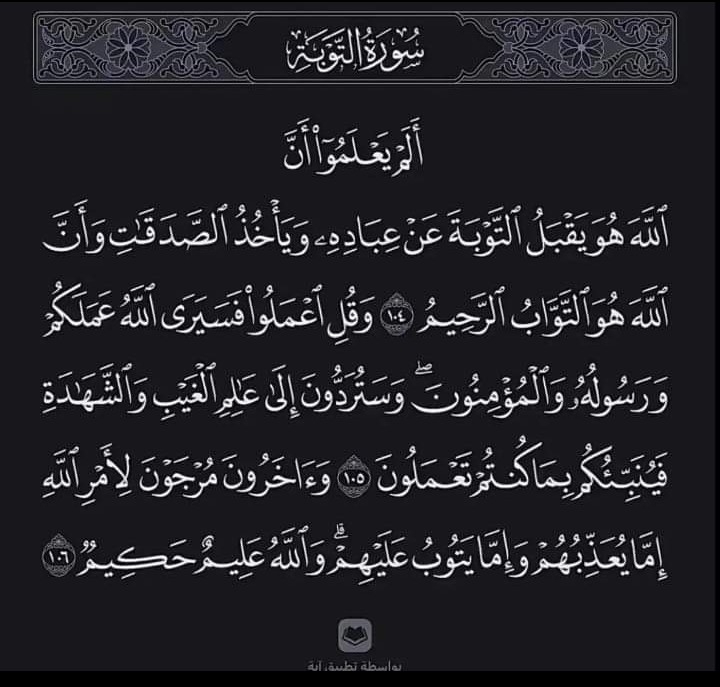 سُورَةُ التَّوْبَةِ
أَلَمْ يَعْلَمُوٓا۟ أَنَّ
ٱللَّهَ هُوَ يَقْبَلُ ٱلتَّوْبَةَ عَنْ عِبَادِهِۦ وَيَأْخُذُ ٱلصَّدَقَٰتِ وَأَنَّ
ٱللَّهَ هُوَ ٱلتَّوَّابُ ٱلرَّحِيمُ ١٠٤ وَقُلِ ٱعْمَلُوا۟ فَسَيَرَى ٱللَّهُ عَمَلَكُمْ
وَرَسُولُهُۥ وَٱلْمُؤْمِنُونَ ۖ وَسَتُرَدُّونَ إِلَىٰ عَٰلِمِ ٱلْغَيْبِ وَٱلشَّهَٰدَةِ
فَيُنَبِّئُكُم بِمَا كُنتُمْ تَعْمَلُونَ ١٠٥ وَءَاخَرُونَ مُرْجَوْنَ لِأَمْرِ ٱللَّهِ
إِمَّا يُعَذِّبُهُمْ وَإِمَّا يَتُوبُ عَلَيْهِمْ ۗ وَٱللَّهُ عَلِيمٌ حَكِيمٌ ١٠٦
بواسطة تطبيق آية